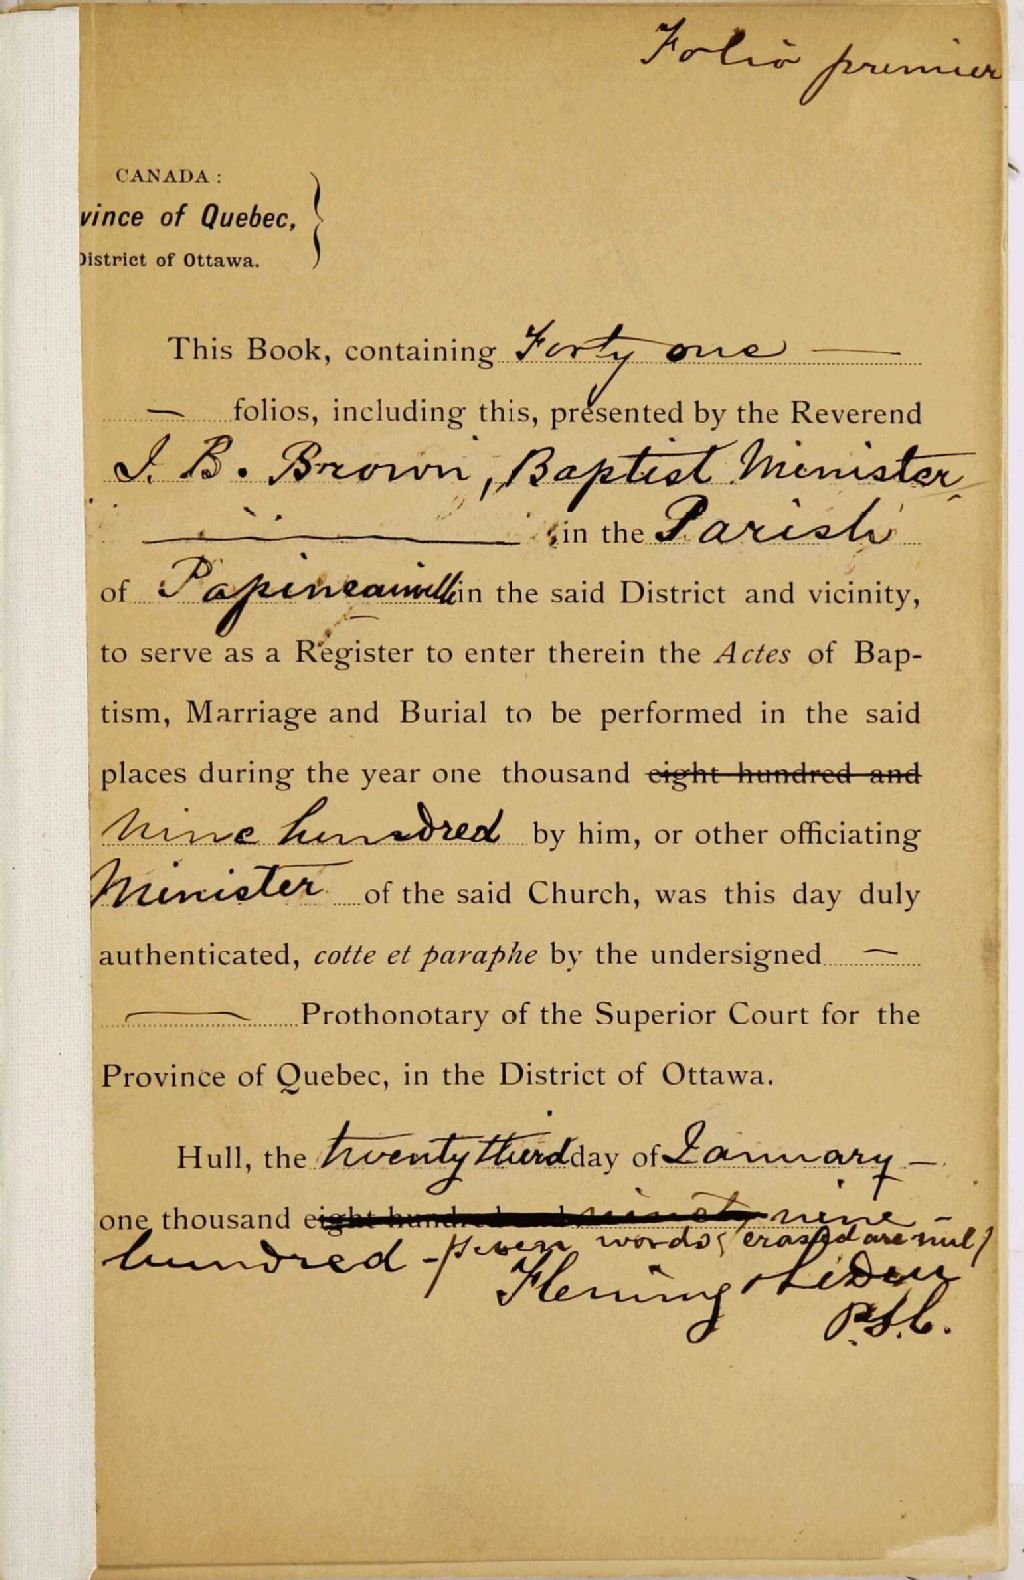 Folio premier
CANADA:
vince of Quebec,
District of Ottawa.
This Book, containing Forty one —
— folios, including this, presented by the Reverend
J. B. Brown, Baptist Minister
in the Parish
of Papineauville in the said District and vicinity,
to serve as a Register to enter therein the Actes of Bap-
tism, Marriage and Burial to be performed in the said
places during the year one thousand eight hundred and
Nine hundred by him, or other officiating
Minister of the said Church, was this day duly
authenticated, cotte et paraphe by the undersigned —
— Prothonotary of the Superior Court for the
Province of Quebec, in the District of Ottawa.
Hull, the twenty third day of January —
one thousand eight hundred and ninety nine —
hundred — (seven words erased are nul)
Fleming &
P.S.C.